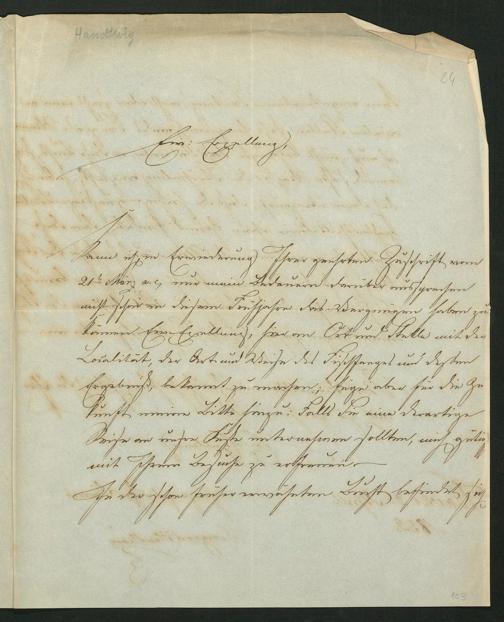 Handlirg
24
Ew: Exzellenz,
Kann ich in Erwiederung Ihrer geehrten Zuschrift vom
21t März a. c., nur mein Bedauern darüber aussprechen
nicht schon in diesem Frühjahre das Vergnügen haben zu
können Euer Exzellenz, hier an Ort und Stelle mit der
Localität, der Art und Weise des Fischfanges und dessen
Ergebniß, bekannt zu machen; füge aber für die Zu
kunft meine Bitte hinzu: Falls Sie eine derartige
Reise an unsre Küste unternehmen sollten, mich gütig
mit Ihrem Besuche zu erfreuen.
In der schon früher erwähnten Bucht befindet sich
103